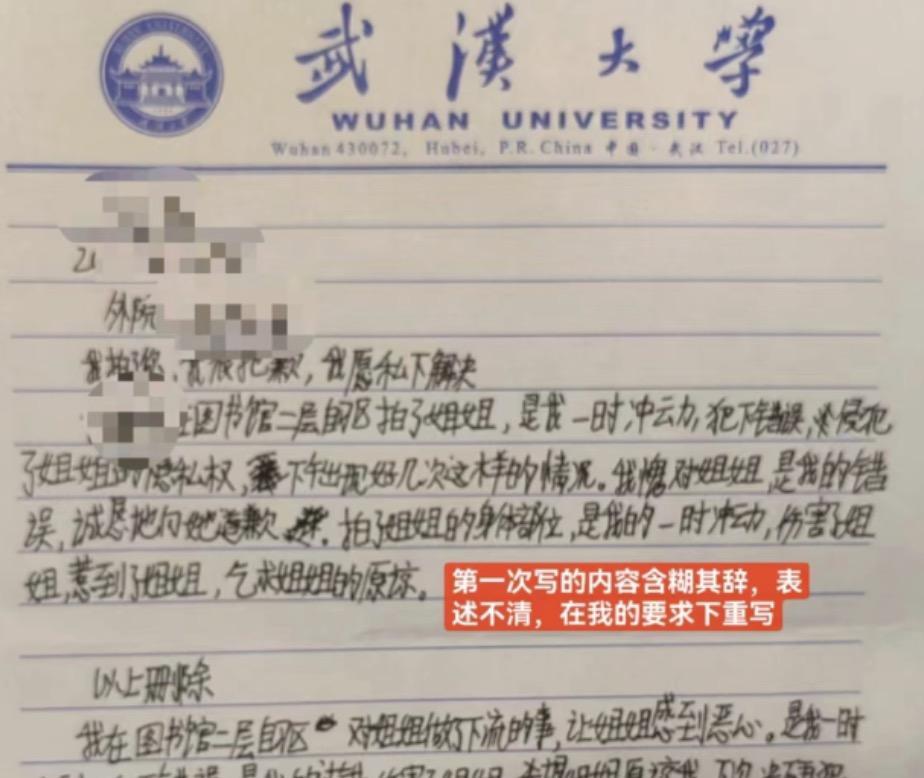 武漢大學
WUHAN UNIVERSITY
Wuhan 430072, Hubei, P.R. China 中国·武汉 Tel.(027)
外院
我愿私下解决
在图书馆二层自习区拍了姐姐,是我一时冲动,犯下错误,侵犯
了姐姐的隐私权,下午出现好几次这样的情况。我愧对姐姐,是我的错
误,诚恳地向她道歉。拍了姐姐的身体部位,是我的一时冲动,伤害了姐
姐,惹到了姐姐,乞求姐姐的原谅。
第一次写的内容含糊其辞,表
述不清,在我的要求下重写
以上删除
我在图书馆二层自习区对姐姐做了下流的事,让姐姐感到恶心。是我一时